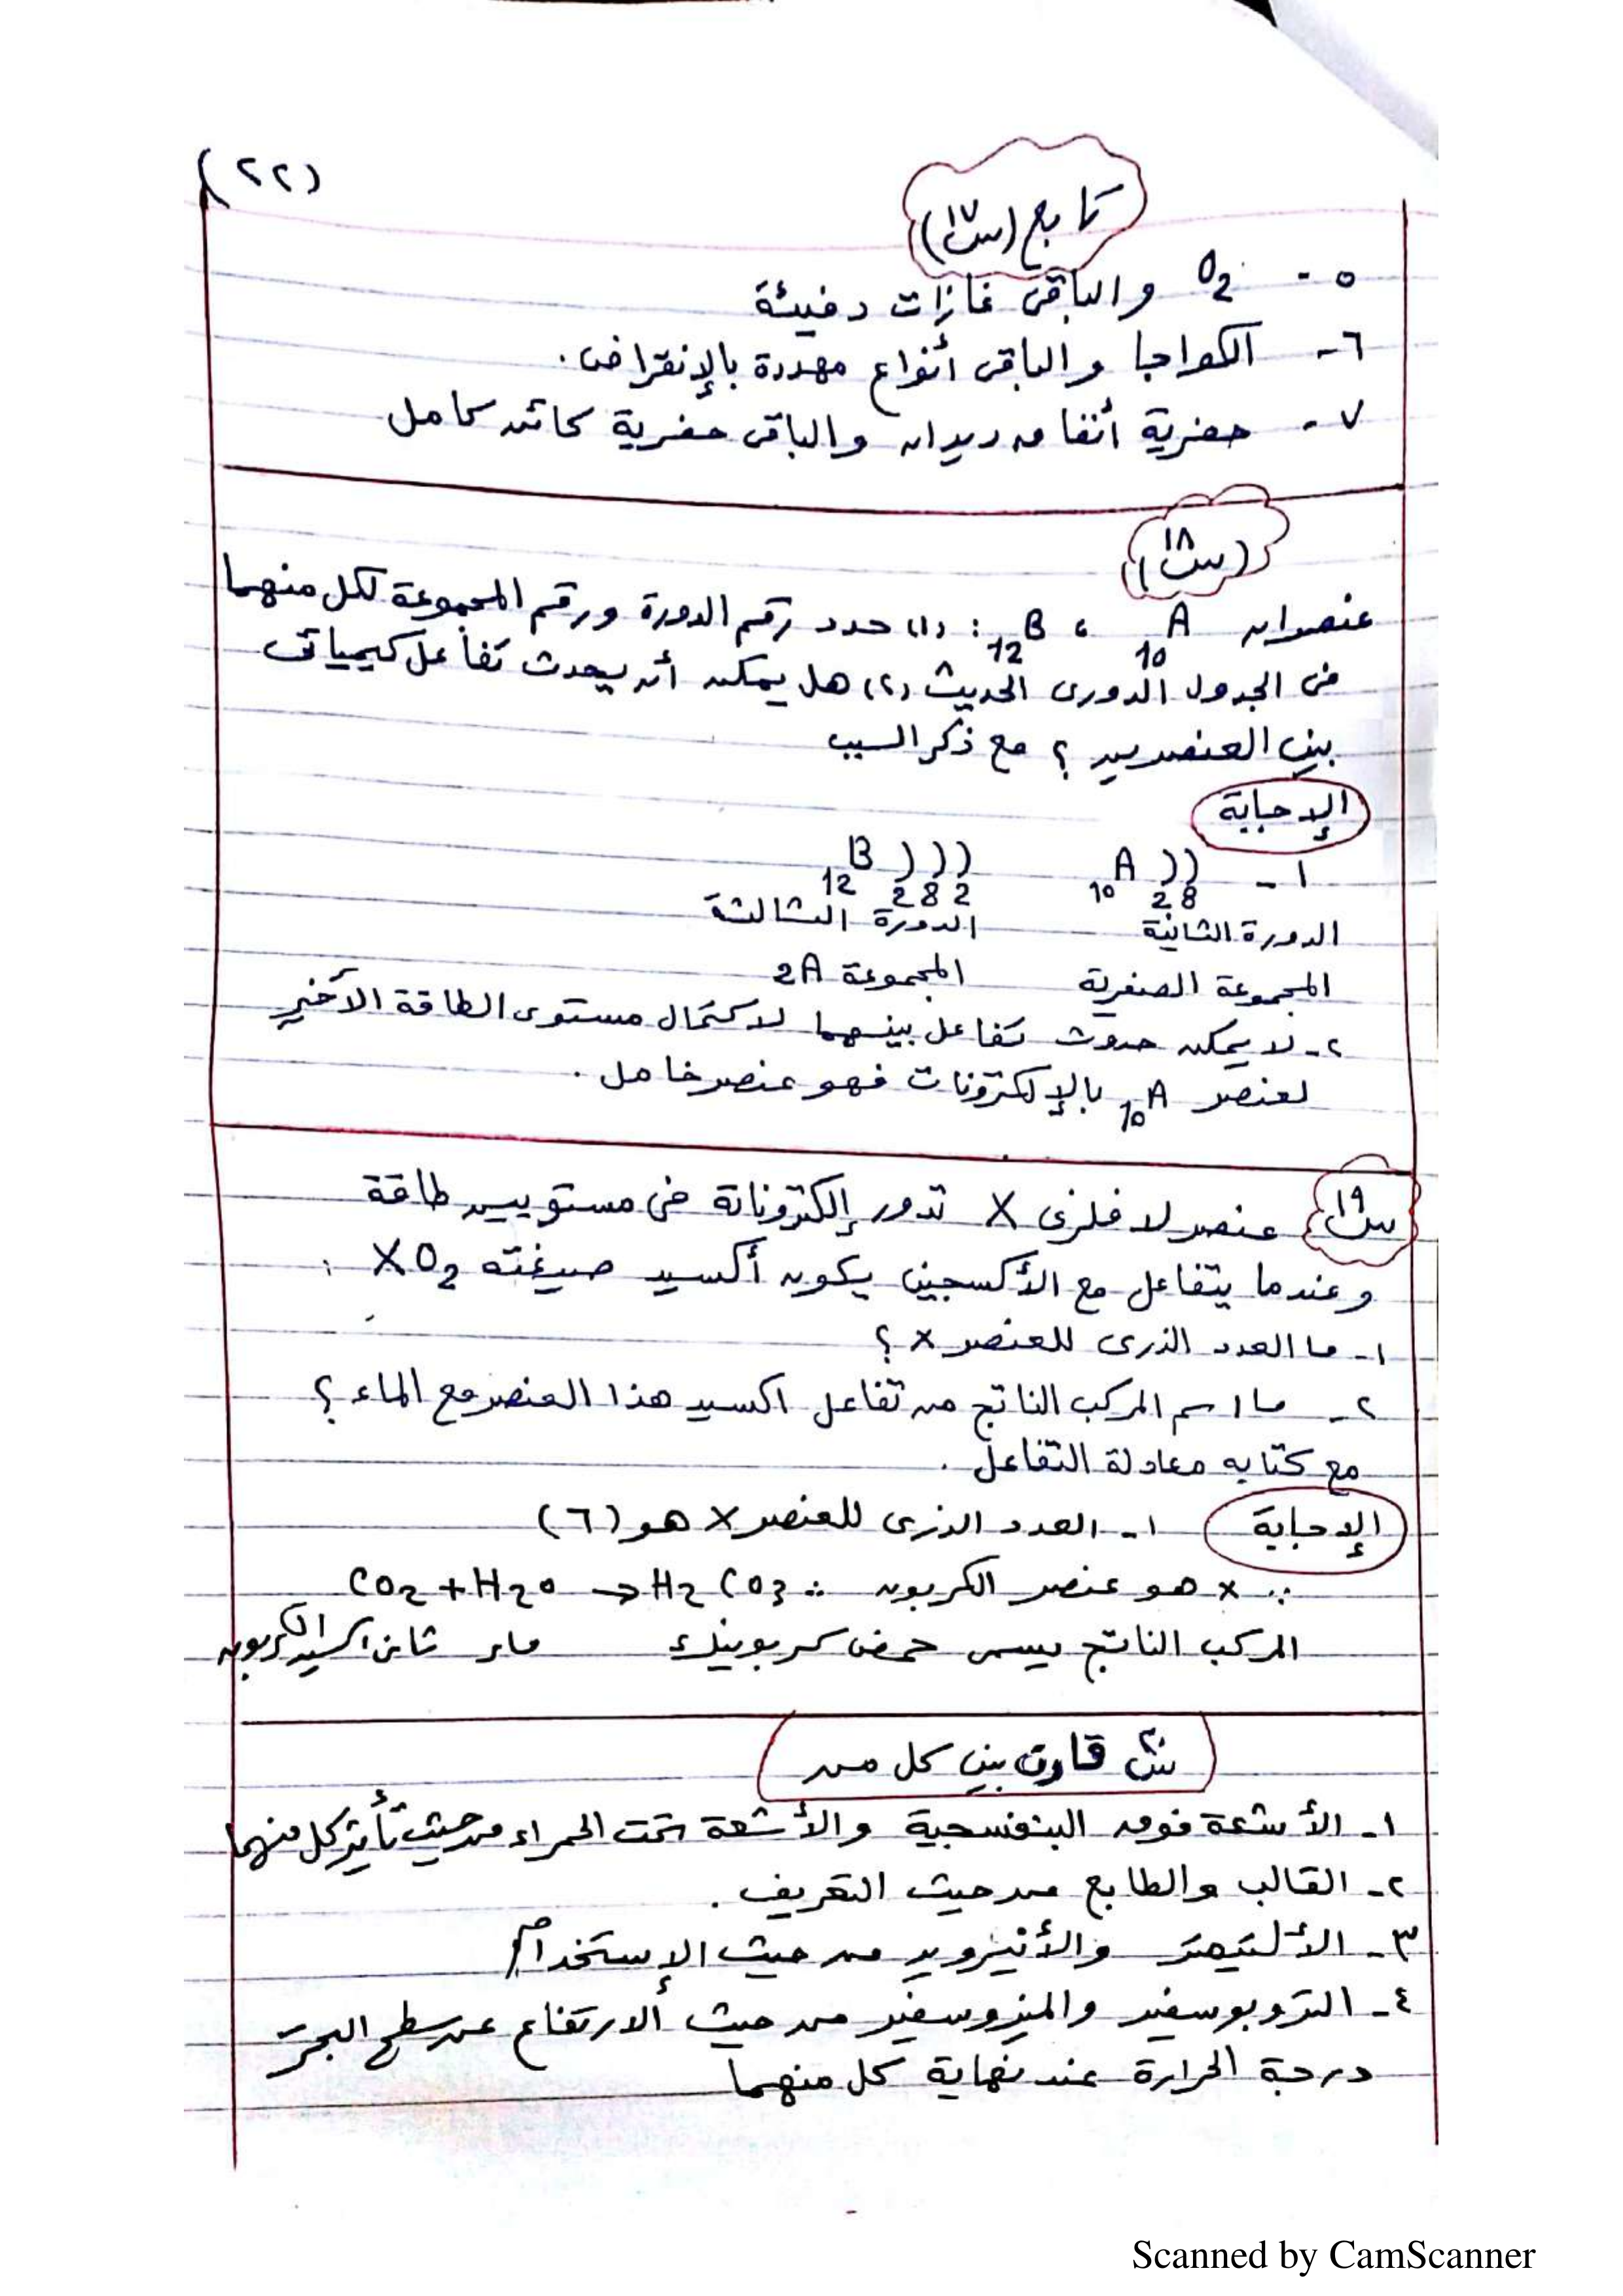 (٢٢)
تابع (س١٧)
٥ - O2 والباقى غازات دفيئة
٦ - الكواجا والباقى أنواع مهددة بالإنقراض.
٧ - حفرية أنفاق ديدان والباقى حفرية كائن كامل
(س١٨)
عنصران 10A ، 12B : (١) حدد رقم الدورة ورقم المجموعة لكل منهما
فى الجدول الدورى الحديث (٢) هل يمكن أن يحدث تفاعل كيميائى
بين العنصرين ؟ مع ذكر السبب
الإجابة
١ - 10A ) ) 12B ) ) )
2 8 2 8 2
الدورة الثانية الدورة الثالثة
المجموعة الصفرية المجموعة 2A
٢ - لا يمكن حدوث تفاعل بينهما لاكتمال مستوى الطاقة الأخير
لعنصر 10A بالإلكترونات فهو عنصر خامل .
س١٩ عنصر لا فلزى X تدور إلكتروناتة فى مستويين طاقة
وعندما يتفاعل مع الأكسجين يكون أكسيد صيغته XO2 :
١ - ما العدد الذرى للعنصر X ؟
٢ - ما اسم المركب الناتج من تفاعل اكسيد هذا العنصر مع الماء ؟
مع كتابه معادلة التفاعل .
الإجابة ١ - العدد الذرى للعنصر X هو (٦)
∵ X هو عنصر الكربون ∴ CO2 + H2O → H2CO3
المركب الناتج يسمى حمض كربونيك ماء ثانى اكسيد الكربون
س٢٠ قارن بين كل من
١ - الأشعة فوق البنفسجية والأشعة تحت الحمراء من حيث تأثير كل منهما
٢ - القالب والطابع من حيث التعريف .
٣ - الألتيمتر والأنيرويد من حيث الإستخدام
٤ - التروبوسفير والميزوسفير من حيث الارتفاع عن سطح البحر
درجة الحرارة عند نهاية كل منهما
Scanned by CamScanner